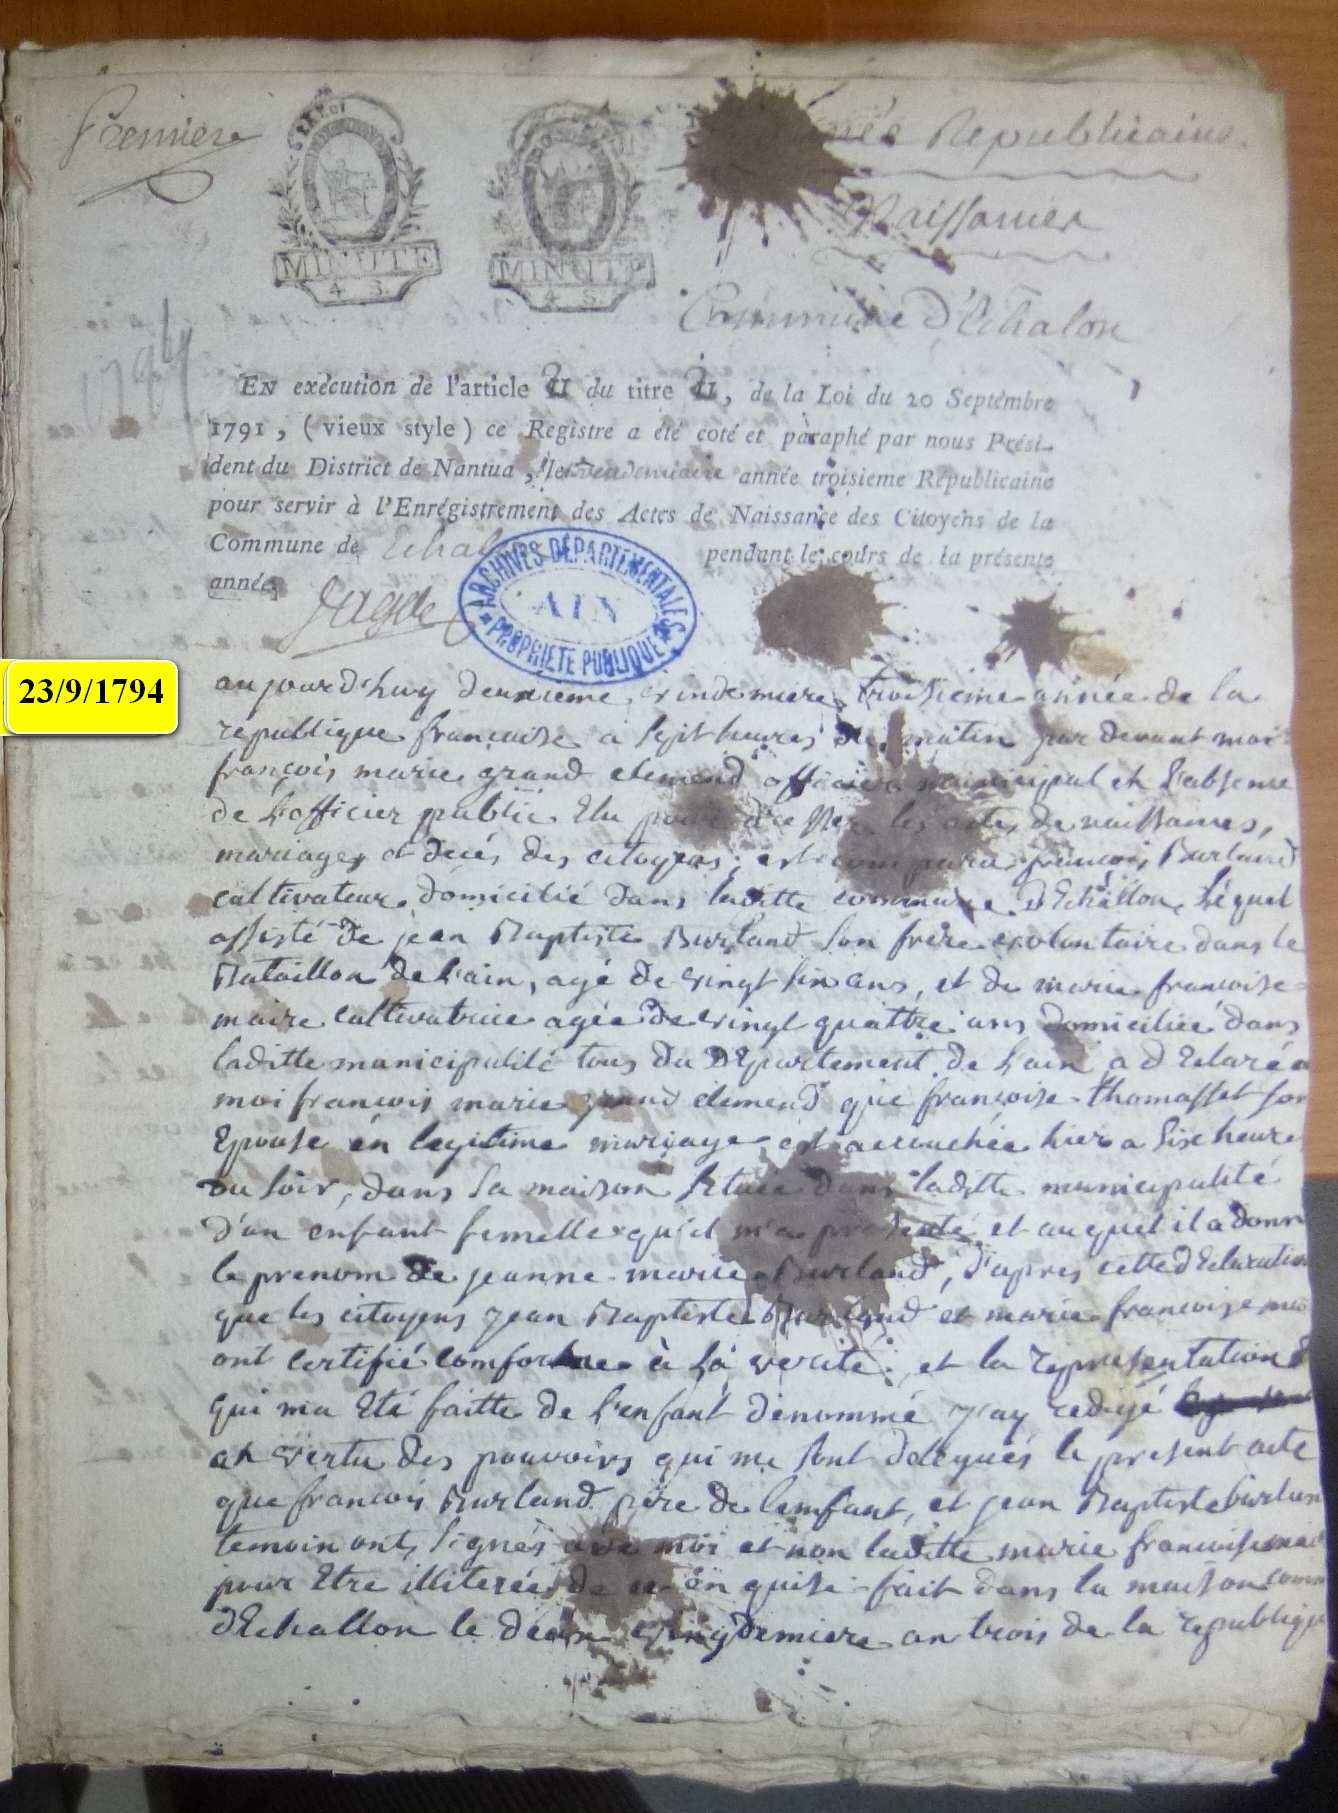 Premiere
année Republicaine
Naissances
MINUTE
4 S.
MINUTE
4 S.
Commune d'Echalon
1794
EN exécution de l'article II du titre II, de la Loi du 20 Septembre
1791, (vieux style) ce Registre a été coté et paraphé par nous Prési-
dent du District de Nantua, le vendemiaire année troisieme Républicaine
pour servir à l'Enrégistrement des Actes de Naissance des Citoyens de la
Commune de Echalon pendant le cours de la présente
année.
ARCHIVES DÉPARTEMENTALES
AIN
PROPRIÉTÉ PUBLIQUE
23/9/1794
aujourd'huy deuxieme vindemiere troisieme année de la
republique francoise a sept heures du matin par devant moi
françois marie grand clemend officier municipal en l'absence
de l'officier public Elu pour dresser les actes de naissances,
mariages et décés des citoyens, est comparu françois Burland
cultivateur domicilié dans laditte commune d'Echallon, Léquel
assisté de jean Baptiste Burland son frère volontaire dans le
Bataillon de l'ain, agé de vingt six ans, et de marie francoise
maire cultivatrice agée de vingt quattre ans domiciliée dans
laditte municipalité tous du Département de L'ain a dEclaré a
moi francois marie grand clemend que françoise Thomasset son
Epouse en legitime mariage est accouchée hier a six heure
du soir, dans sa maison situee dans laditte municipalité
d'un enfant femelle qu'il m'a presenté et auquel il a donn
le prenom de jeanne marie Burland, d'apres cette dEclaration
que les citoyens jean Baptiste Burland et marie francoise
ont certifié comforme à la verité, et la representation
qui ma Eté faitte de l'enfant dénommé j'ay redijé
en vertu des pouvoirs qui me sont delegués le present acte
que francois Burland père de lemfant, et jean Baptiste burlan
temoin ont signés avec moi et non laditte marie francoise
pour Etre illiterée de ce en quise fait dans la maison comm
dEchallon le deux vingdemiere an trois de la republique